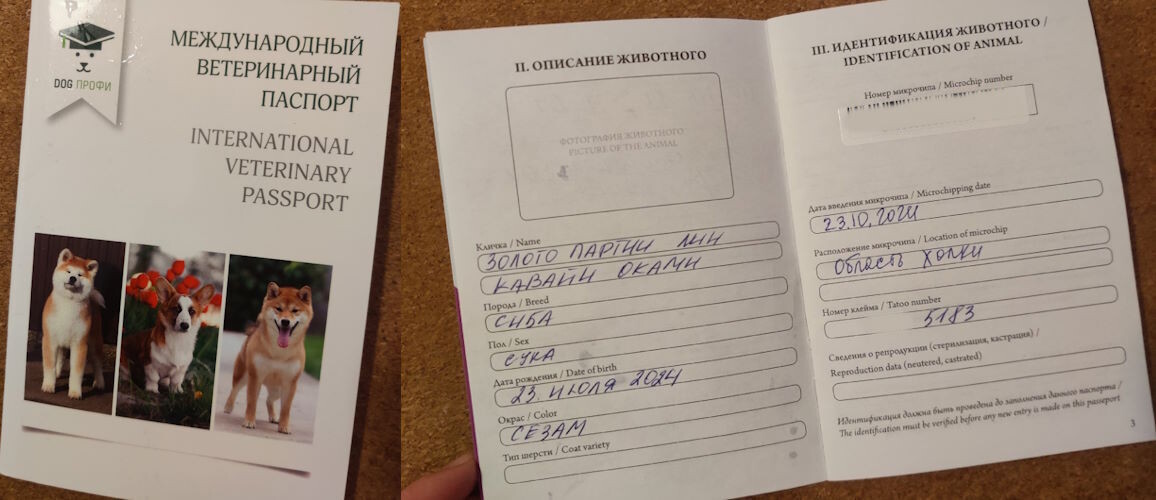 DOG ПРОФИ
МЕЖДУНАРОДНЫЙ
ВЕТЕРИНАРНЫЙ
ПАСПОРТ
INTERNATIONAL
VETERINARY
PASSPORT
II. ОПИСАНИЕ ЖИВОТНОГО
ФОТОГРАФИЯ ЖИВОТНОГО
PICTURE OF THE ANIMAL
Кличка / Name
ЗОЛОТО ПАРТИИ ЛИН
КАВАЙИ ОКАМИ
Порода / Breed
СИБА
Пол / Sex
СУКА
Дата рождения / Date of birth
23. ИЮЛЯ 2024
Окрас / Color
СЕЗАМ
Тип шерсти / Coat variety
III. ИДЕНТИФИКАЦИЯ ЖИВОТНОГО /
IDENTIFICATION OF ANIMAL
Номер микрочипа / Microchip number
Дата введения микрочипа / Microchipping date
23.10.2024
Расположение микрочипа / Location of microchip
Область холки
Номер клейма / Tatoo number
5183
Сведения о репродукции (стерилизация, кастрация) /
Reproduction data (neutered, castrated)
Идентификация должна быть проведена до заполнения данного паспорта /
The identification must be verified before any new entry is made on this passeport
3